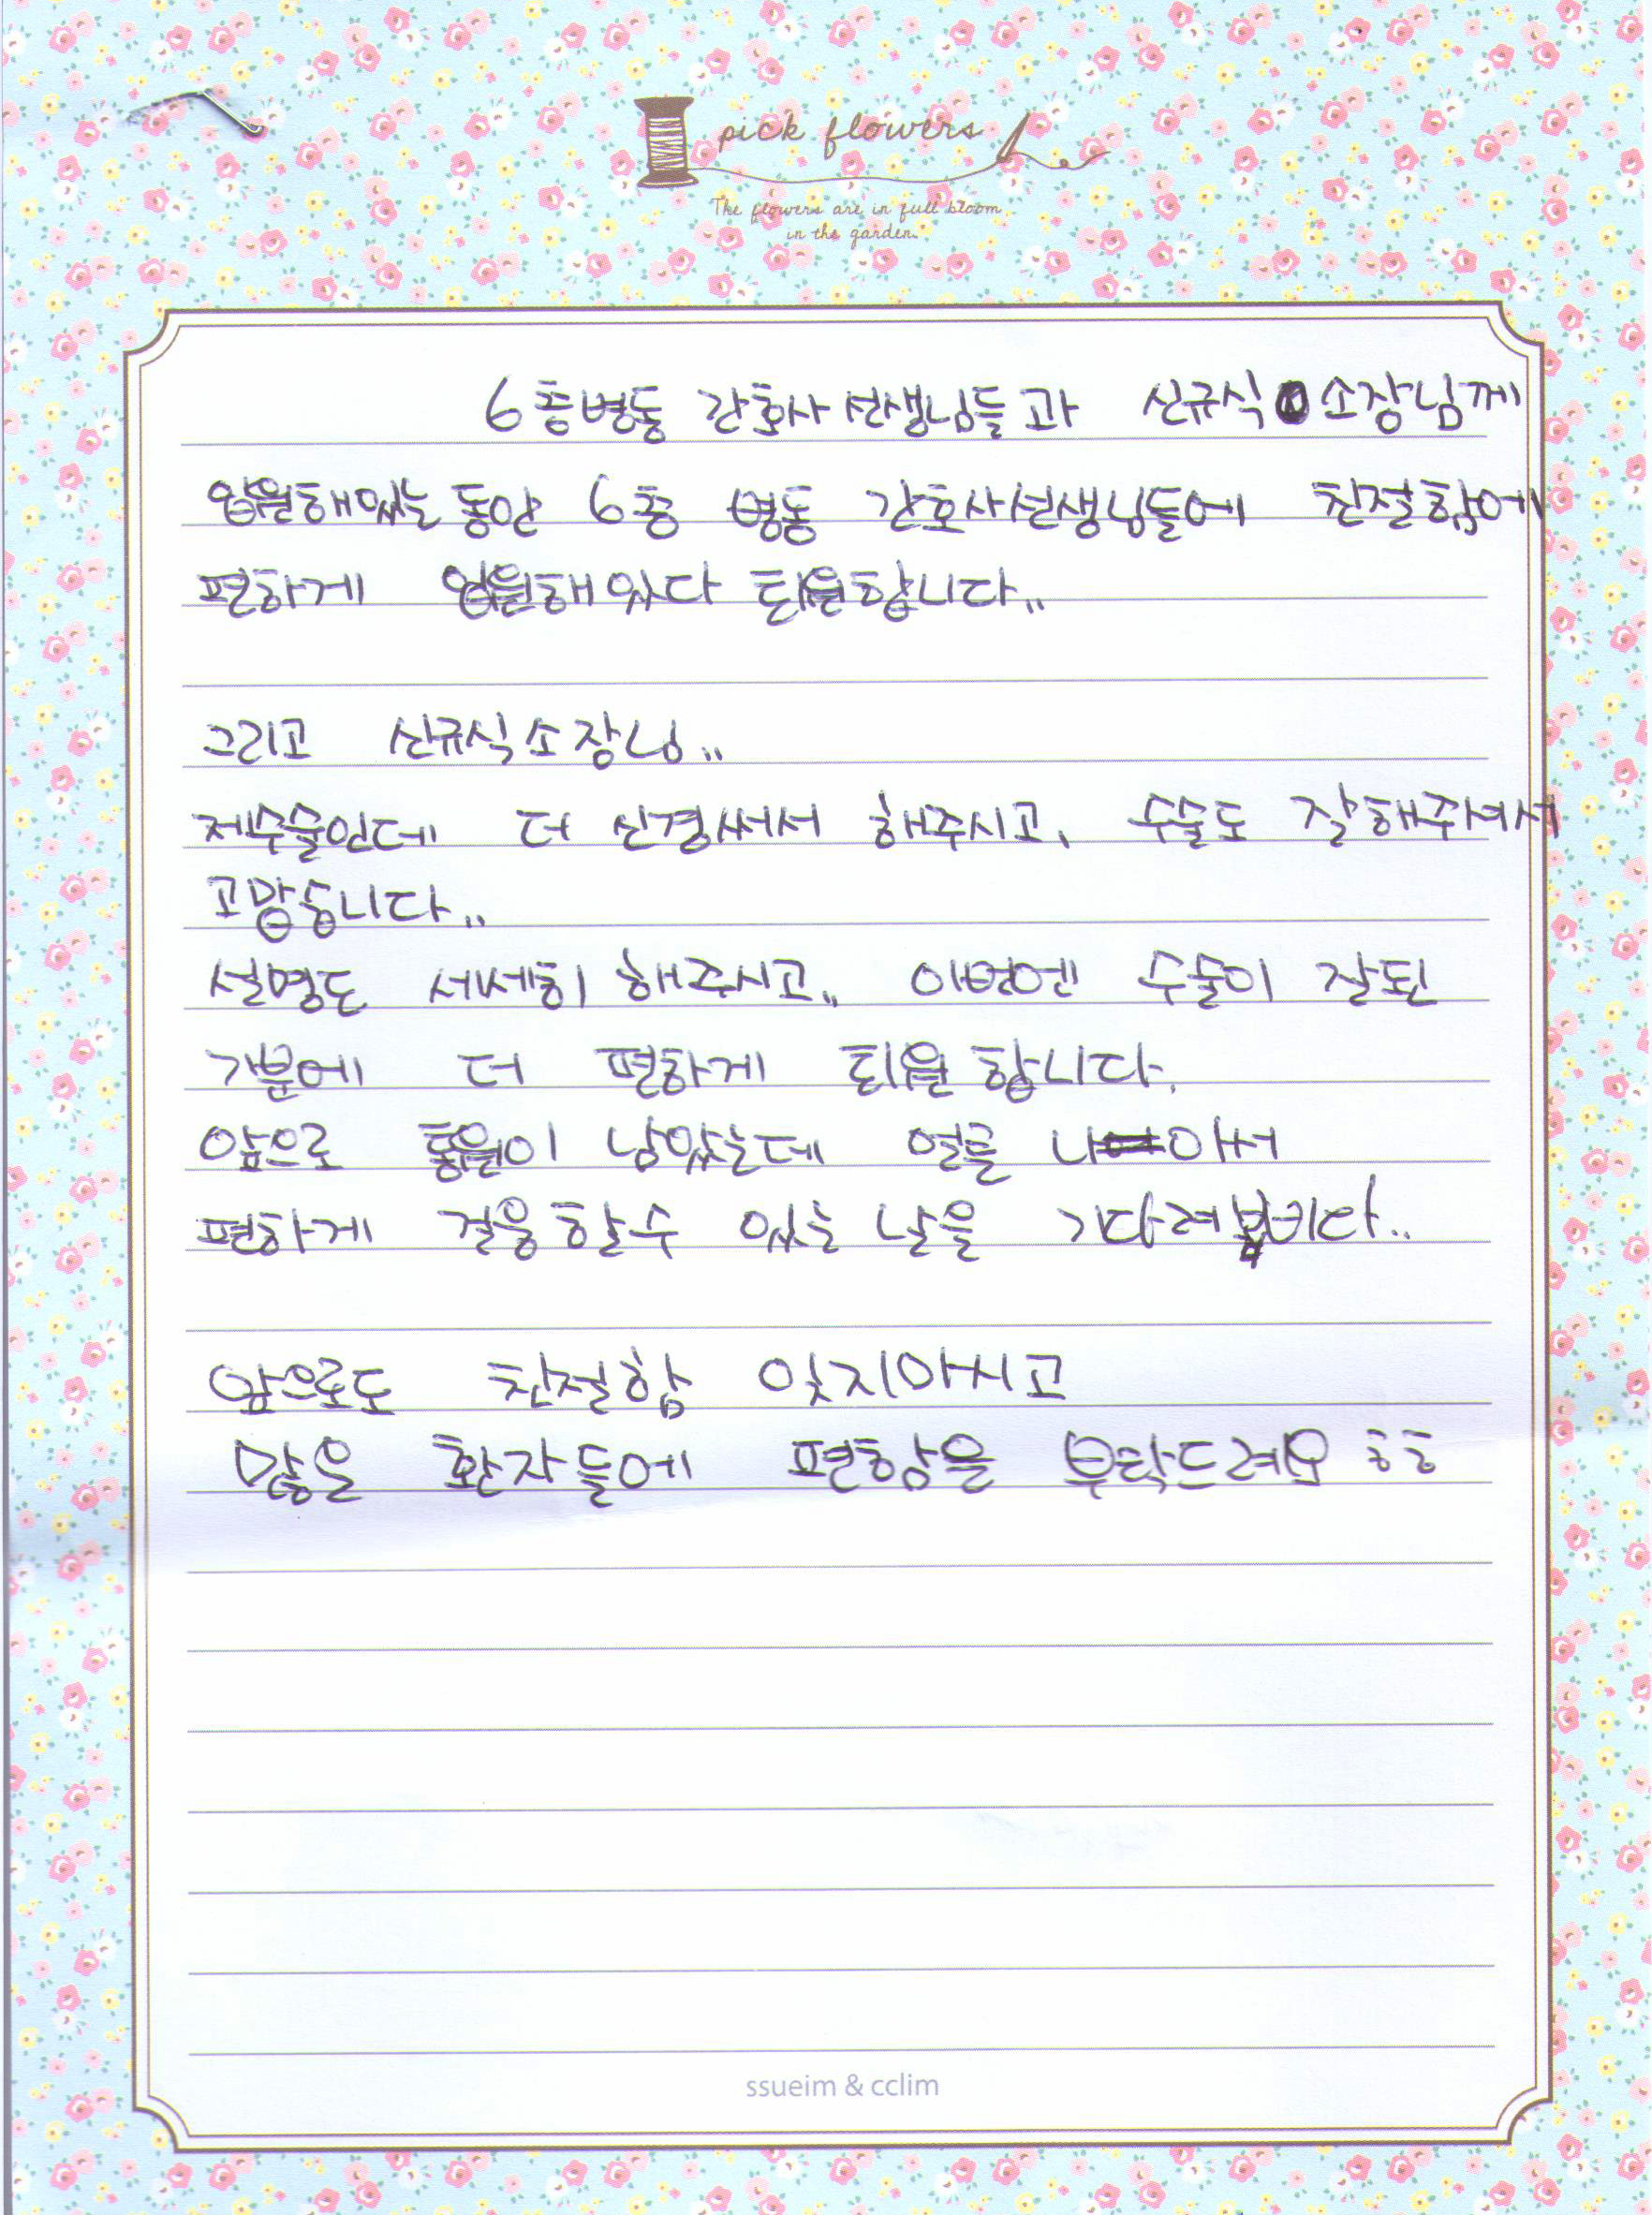 pick flowers
The flowers are in full bloom
in the garden.
6층병동 간호사선생님들과 신규식 소장님께
입원해있는 동안 6층 병동 간호사선생님들에 친절함에
편하게 입원해있다 퇴원합니다..
그리고 신규식소장님..
제수술인데 더 신경써서 해주시고, 수술도 잘해주셔서
고맙습니다..
설명도 세세히 해주시고.. 이번엔 수술이 잘된
기분에 더 편하게 퇴원합니다.
앞으로 통원이 남았는데 얼른 나아서
편하게 걸음할수 있는 날을 기다려봅니다..
앞으로도 친절함 잊지마시고
많은 환자들에 편함을 부탁드려요 ㅎㅎ
ssueim & cclim